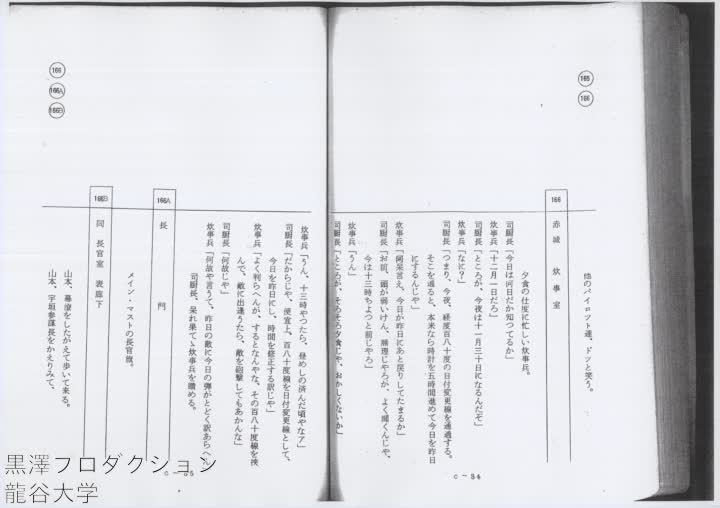 165
166
他のパイロット達、ドッと笑う。
166 赤城 炊事室
夕食の仕度に忙しい炊事兵。
司厨長「今日は何日だか知つてるか」
炊事兵「十二月一日だろ」
司厨長「ところが、今夜は十一月三十日になるんだぞ」
炊事兵「なに?」
司厨長「つまり、今夜、経度百八十度の日付変更線を通過する。
そこを通ると、本来なら時計を五時間進めて今日を昨日
にするんじや」
炊事兵「阿呆言え、今日が昨日にあと戻りしてたまるか」
司厨長「お前、頭が弱いけん、無理じやろが、よく聞くんじや、
今は十三時ちよつと前じやろ」
炊事兵「うん」
司厨長「ところが、そろそろ夕食じや、おかしくないか」
C－84
166
166A
166B
炊事兵「うん、十三時やつたら、昼めしの済んだ頃やなア」
司厨長「だからじや、便宜上、百八十度線を日付変更線として、
今日を昨日にし、時間を修正する訳じや」
炊事兵「よく判らへんが、するとなんやな、その百八十度線を挾
んで、敵に出逢うたら、敵を砲撃してもあかんな」
司厨長「何故じや」
炊事兵「何故や言うて、昨日の敵に今日の弾がとどく訳あらへん」
司厨長、呆れ果てゝ炊事兵を瞻める。
166A 長門
メイン・マストの長官旗。
166B 同 長官室 表廊下
山本、幕僚をしたがえて歩いて来る。
山本、宇垣参謀長をかえりみて、
黒澤プロダクション
龍谷大学